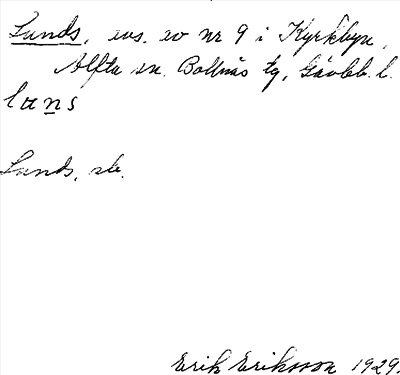 Lunds, evs. av nr 9 i Kyrkbyn,
Alfta sn. Bollnäs tg, Gävleb. l.
lɯns
Lunds, str.
Erik Eriksson 1929.